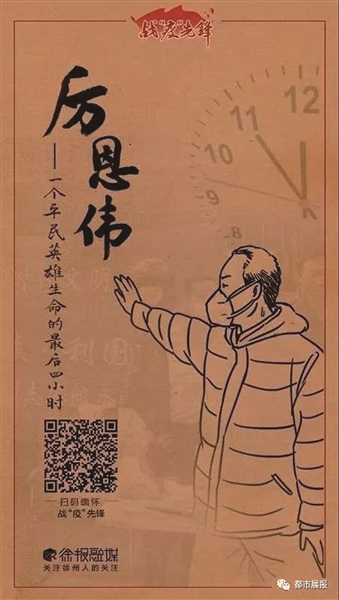 战"疫"先锋
厉恩伟
——一个平民英雄生命的最后四小时
12
11
10
9
8
扫码缅怀
战"疫"先锋
徐报融媒
关注徐州人的关注
都市晨报